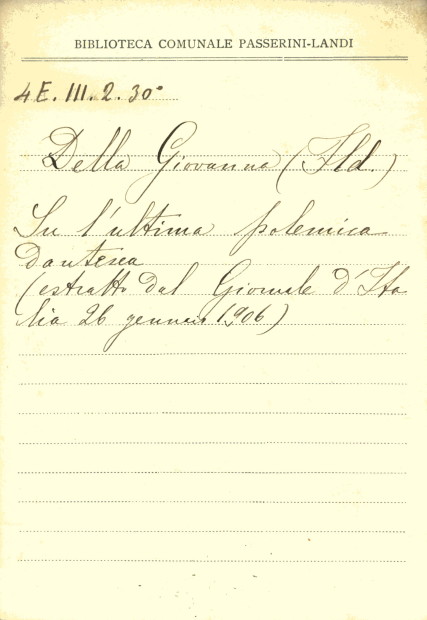 BIBLIOTECA COMUNALE PASSERINI-LANDI
4E. III. 2. 30°
Della Giovanna (Ild.)
Su l'ultima polemica
dantesca
(estratto dal Giornale d'Ita
lia 26 gennaio 1906)